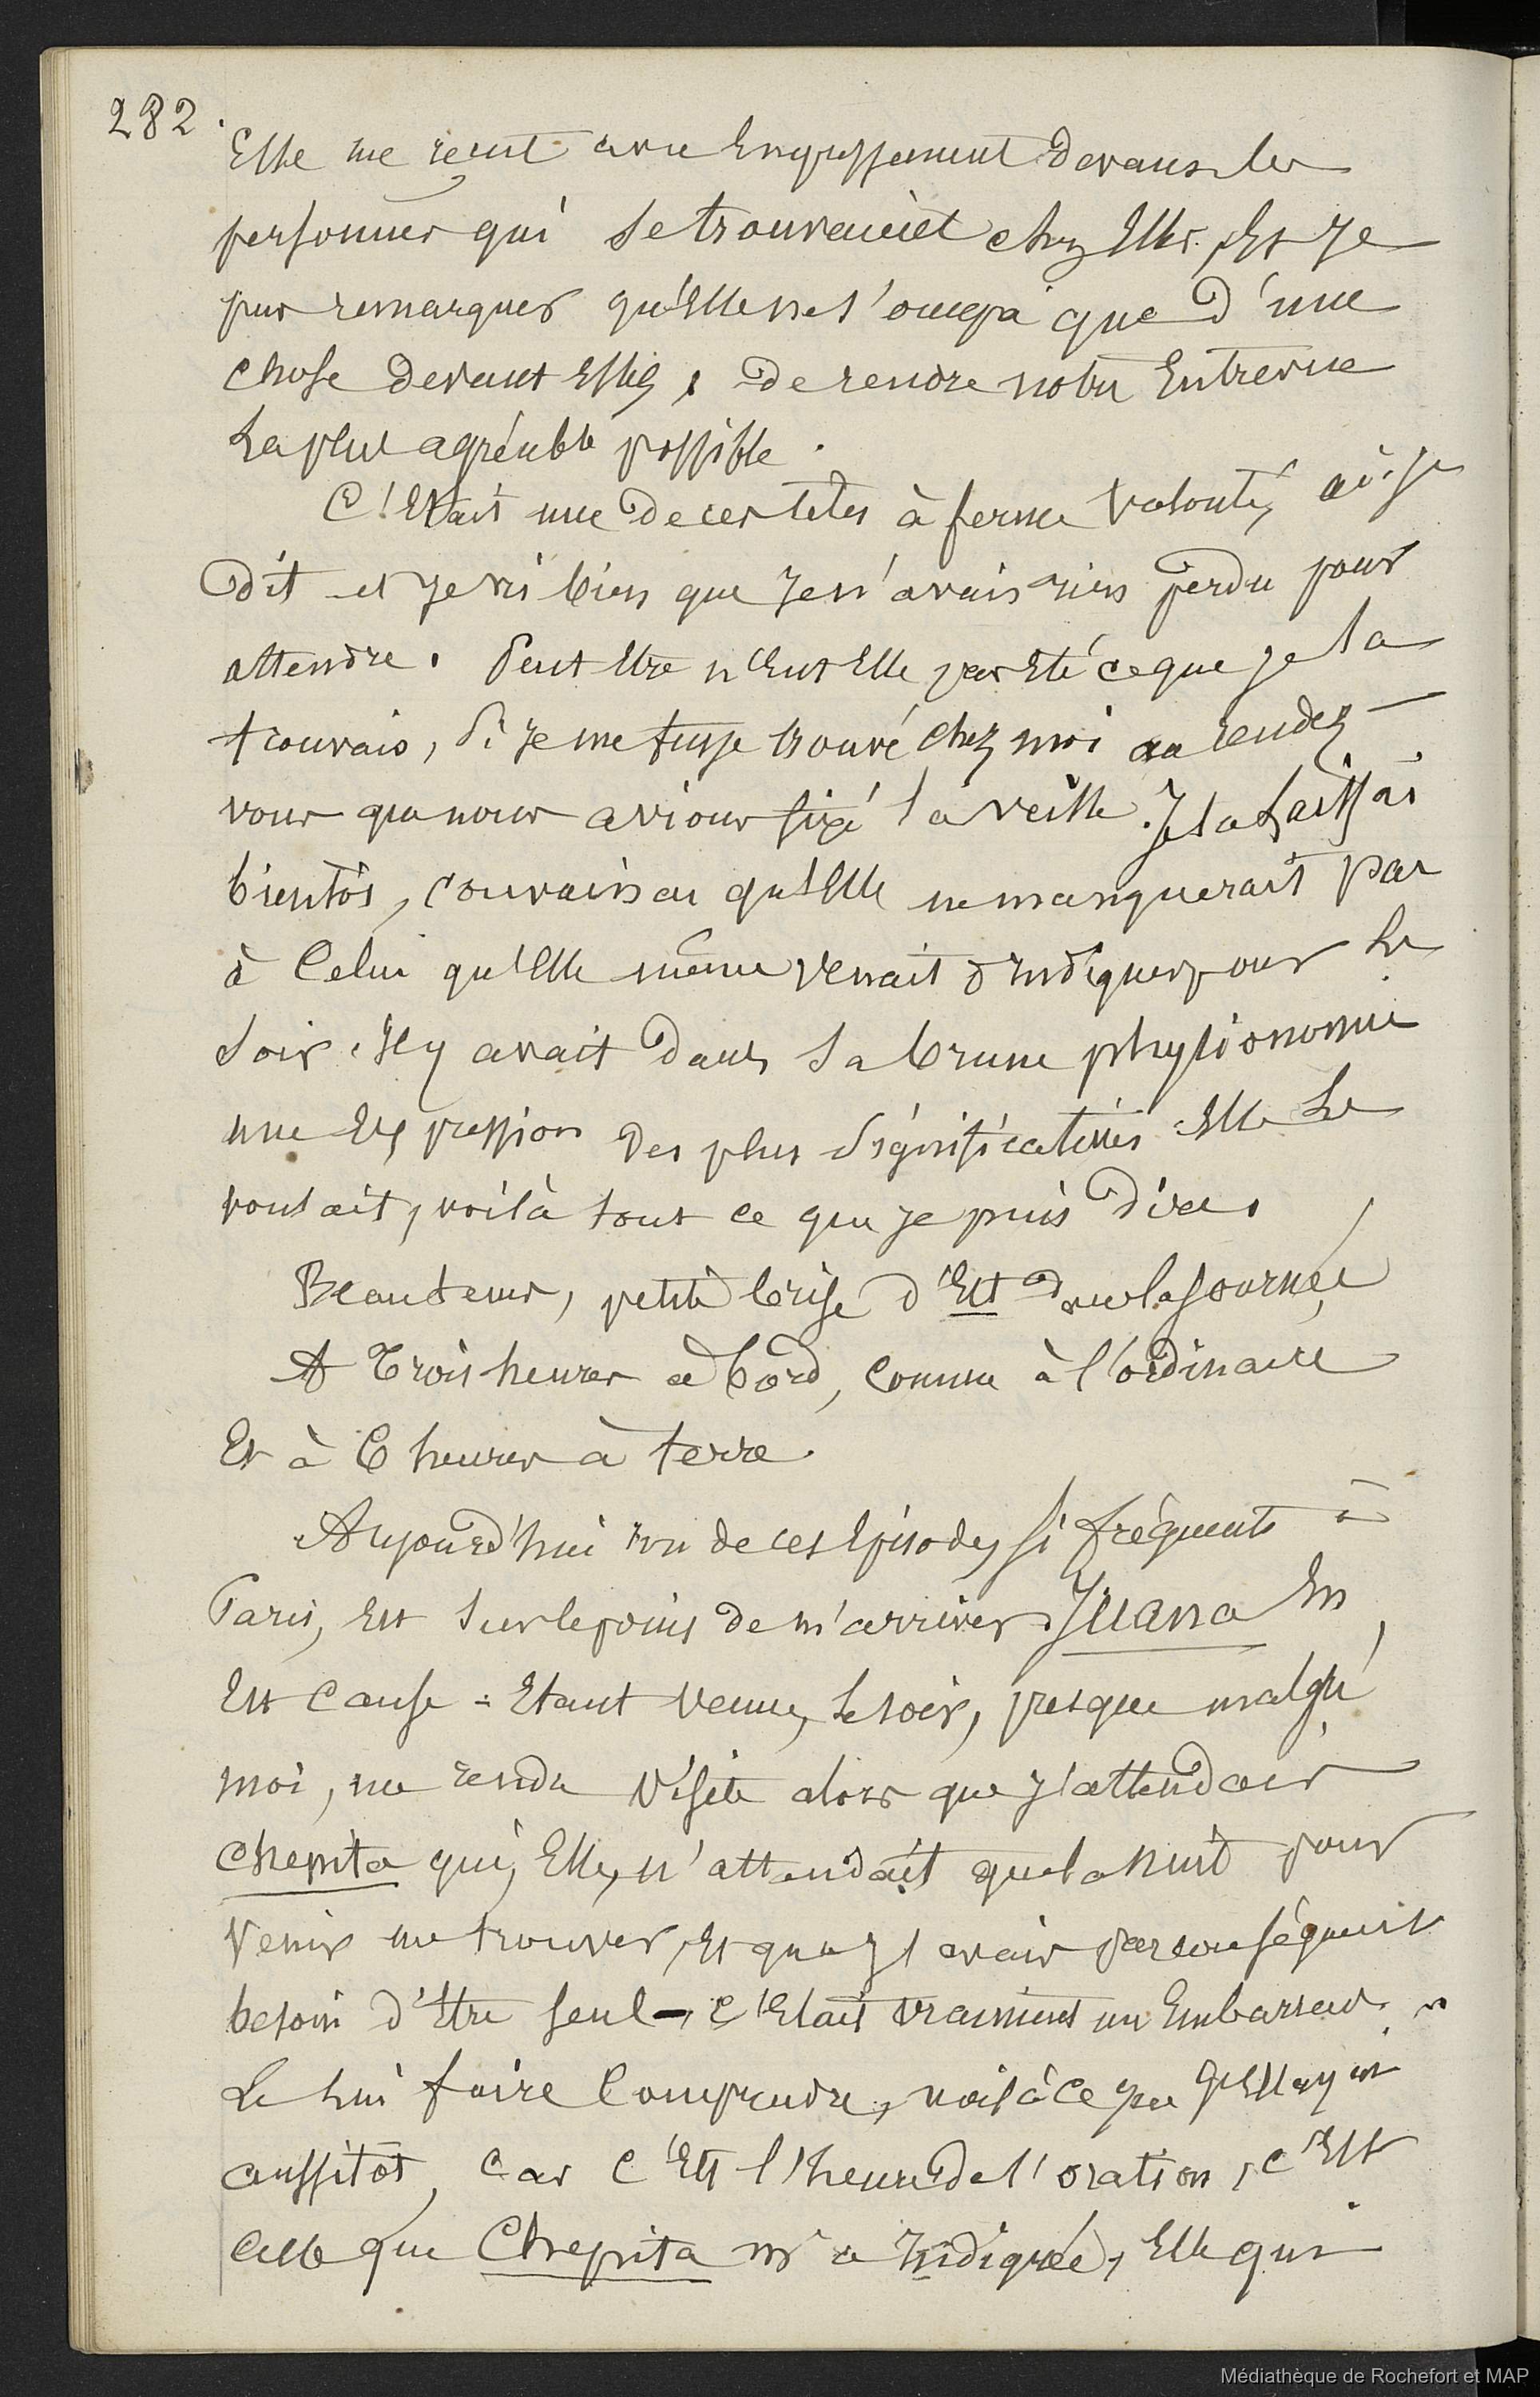 282.
Elle me reçut avec Empressement devant les
personnes qui se trouvaient chez Elle, Et je
pus remarquer qu'Elle ne s'occupa que d'une
chose devant Elles, de rendre notre Entrevue
La plus agréable possible.
C'Etait une de ces têtes à ferme volonté, ai-je
Dit et je vis bien que je n'avais rien perdu pour
attendre. Peut Etre n'Eut Elle pas Eté ce que je la
trouvais, Si je me fusse trouvé chez moi au rendez-
vous que nous avions fixé la veille. Je la Laissai
bientôt, convaincu qu'Elle ne manquerait pas
à Celui qu'Elle même venait d'Indiquer pour Le
Soir. Il y avait Dans sa brune physionomie
une Expression Des plus Significatives Elle Le
voulait, voilà tout ce que je puis Dire.
Beau tems, petite brise d'Est dans la Journée
A Trois heures à bord, comme à l'ordinaire
Et à 6 heures à terre.
Aujourd'hui un de ces Episodes si fréquents à
Paris, Est Sur le point de m'arriver. Juana En
Est Cause. Etant venue, Le soir, presque malgré
moi, me rendre Visite alors que j'attendais
Chepita qui, Elle, n'attendait que la Nuit pour
Venir me trouver, Et que j'avais par conséquent
besoin d'Etre Seul -, c'Etait vraiment un Embarras.
Le lui faire Comprendre, voilà ce que
aussitôt, Car C'Est l'heure de l'oration, c'Est
Celle que Chepita m'a Indiquée, Elle qui
Médiathèque de Rochefort et MAP